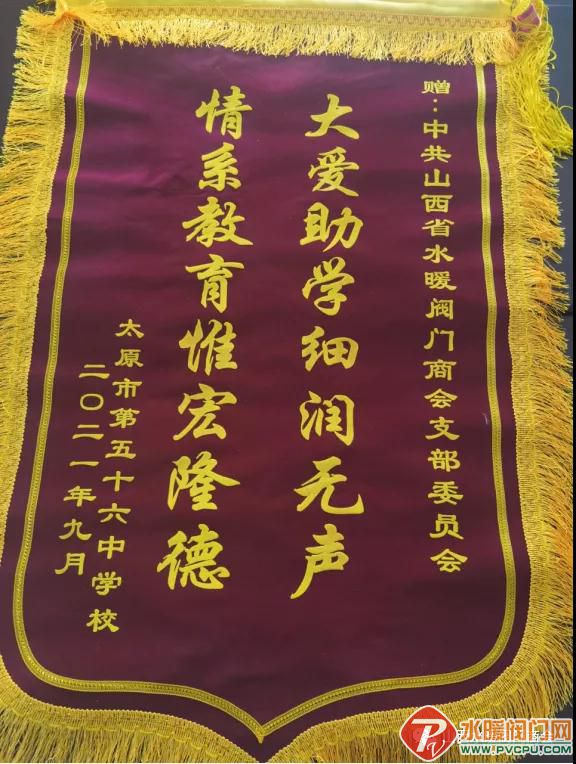 赠:中共山西省水暖阀门商会支部委员会
大爱助学细润无声
情系教育惟宏隆德
太原市第五十六中学校
二〇二一年九月
水暖阀门网
www.PVCPU.com